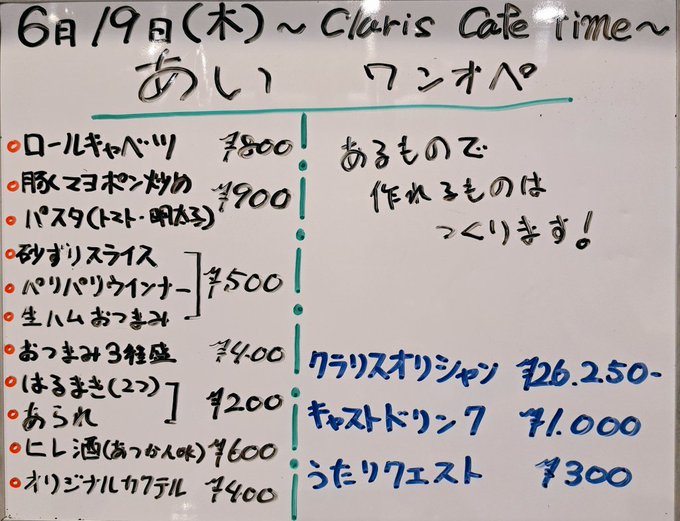 6月19日(木)~ Claris Cafe Time~
あい ワンオペ
ロールキャベツ ¥800
豚マヨポン炒め
¥900
パスタ(トマト・明太子)
砂ずりスライス
パリパリウインナー ¥500
生ハムおつまみ
おつまみ3種盛 ¥400
はるまき(2つ)
¥200
あられ
ヒレ酒(あつかんok) ¥600
オリジナルカクテル ¥400
あるもので
作れるものは
つくります!
クラリスオリシャン ¥26.250-
キャストドリンク ¥1.000
うたリクエスト ¥300